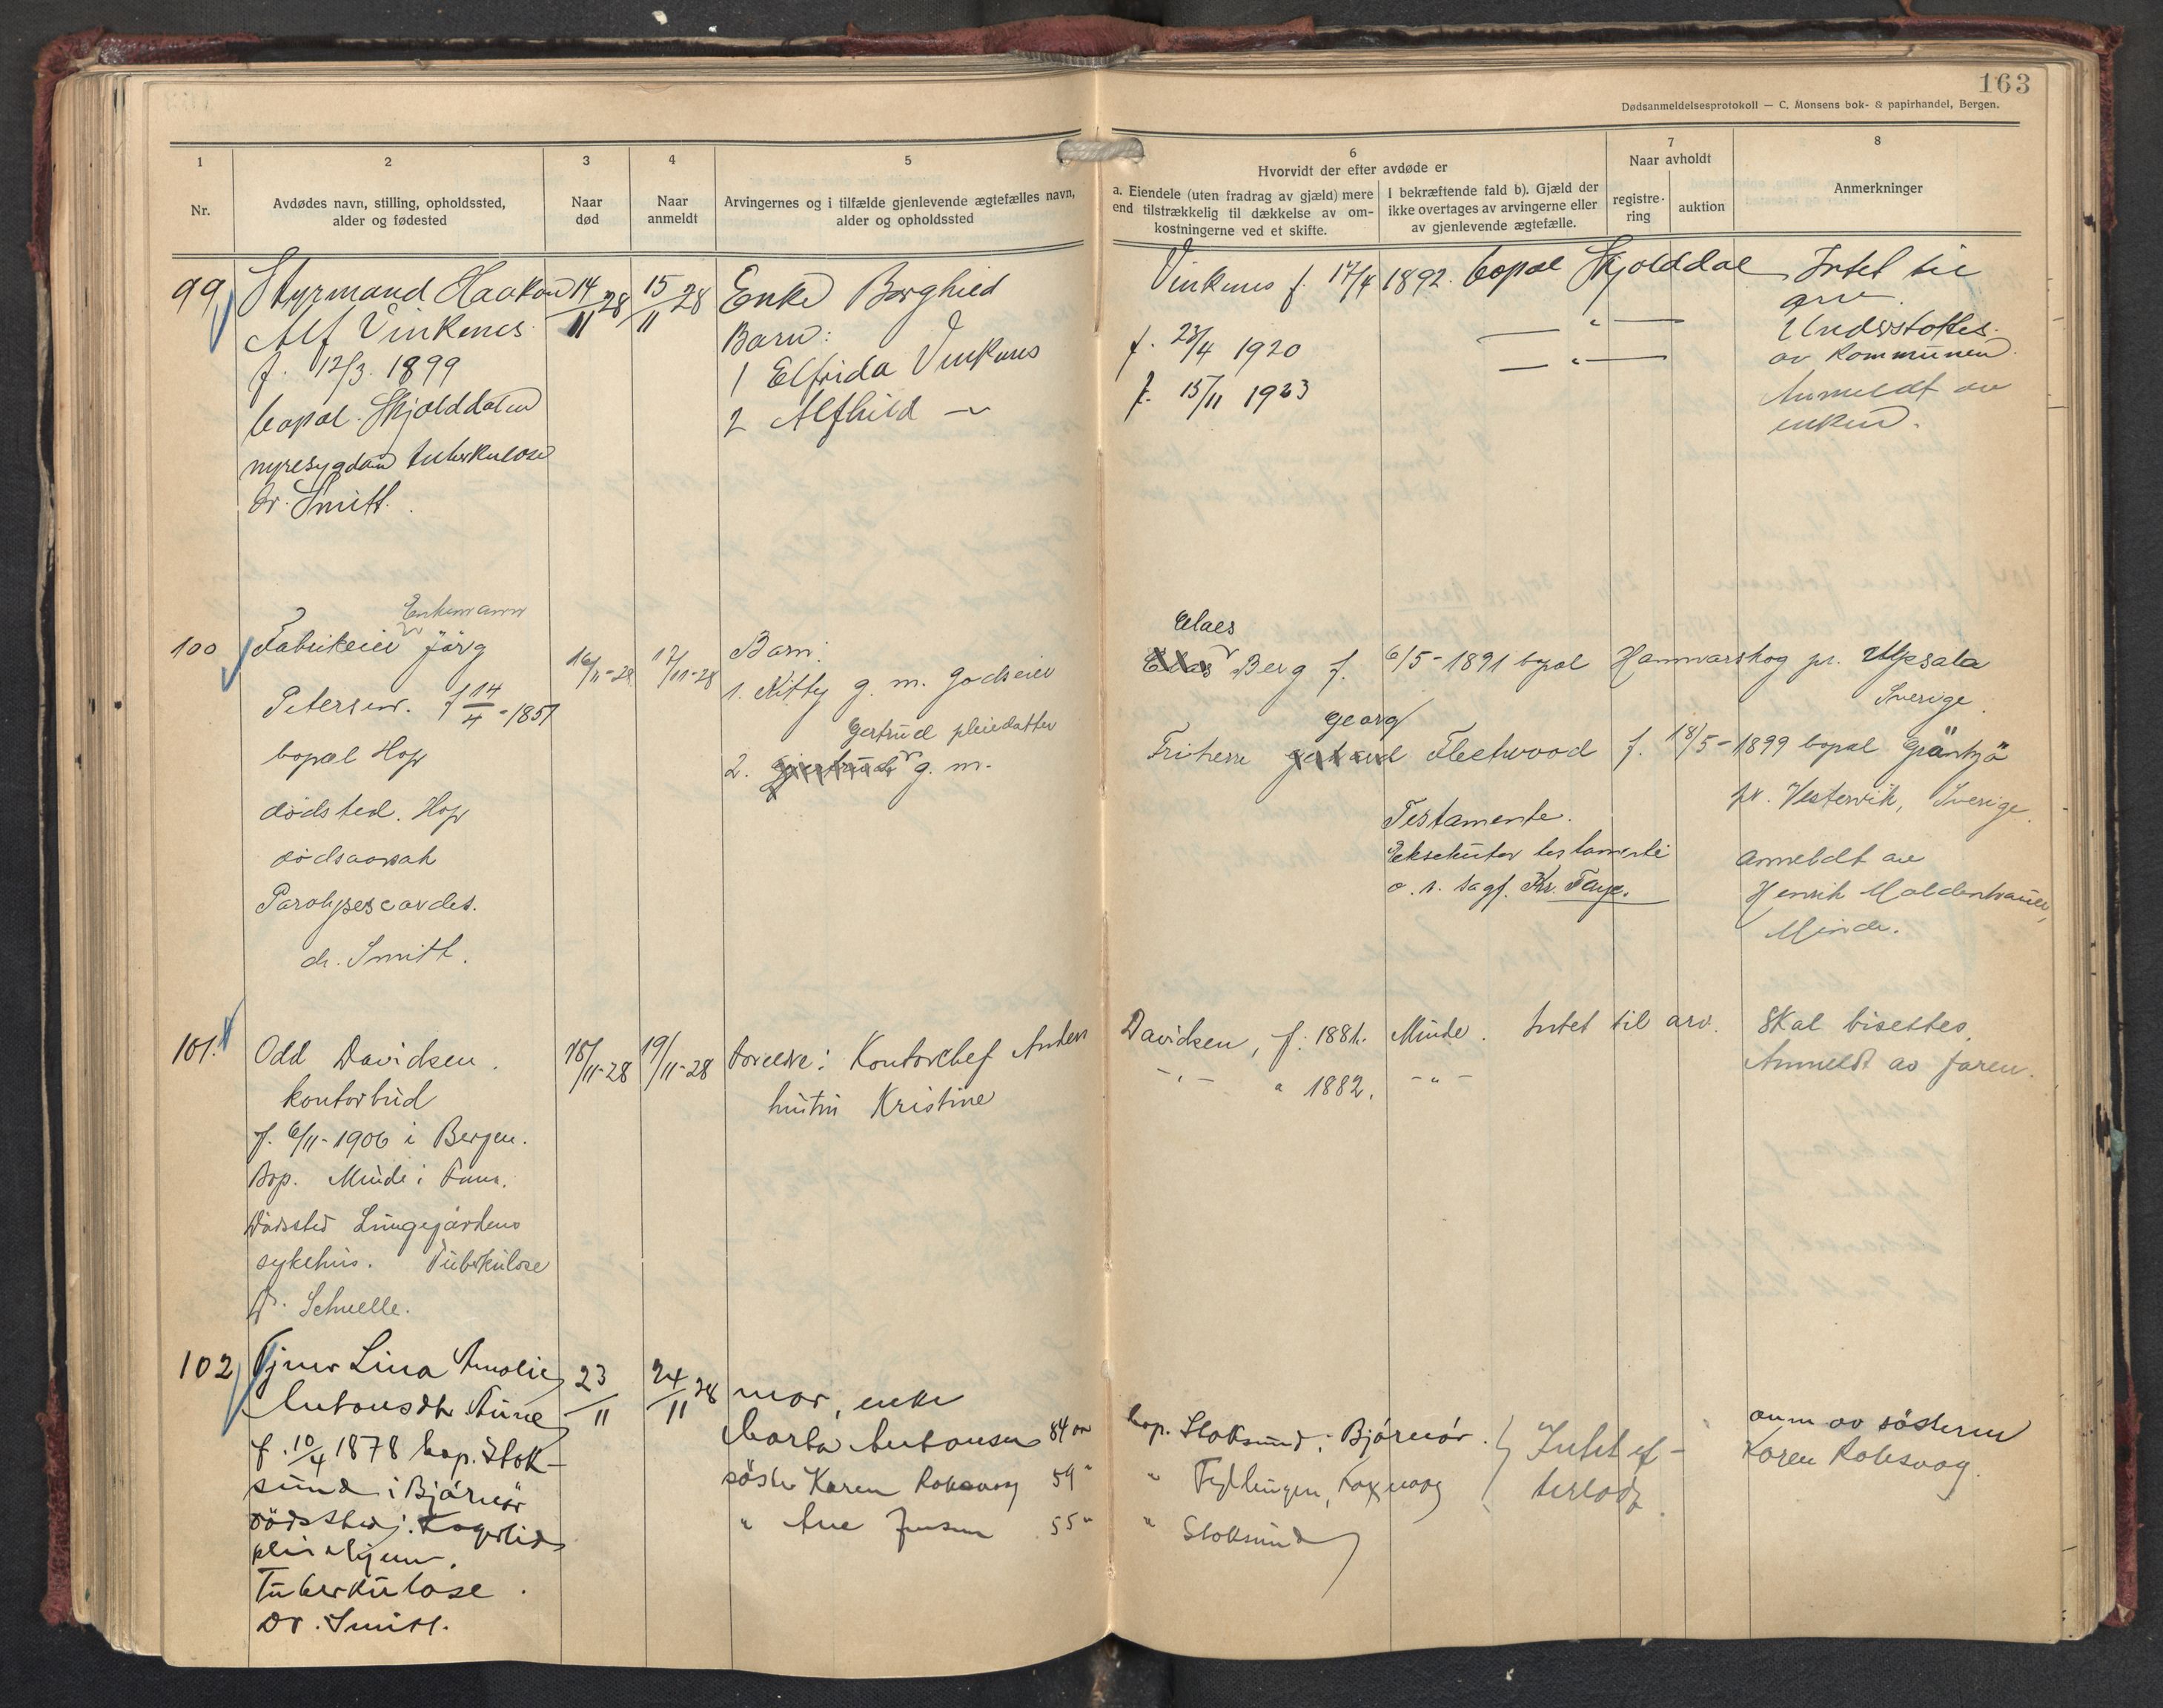 163
Dødsanmeldelsesprotokoll — C. Monsens bok- & papirhandel, Bergen.
1
Nr.
2
Avdødes navn, stilling, opholdssted,
alder og fødested
3
Naar
død
4
Naar
anmeldt
5
Arvingernes og i tilfælde gjenlevende ægtefælles navn,
alder og opholdssted
6
Hvorvidt der efter avdøde er
a. Eiendele (uten fradrag av gjæld) mere
end tilstrækkelig til dækkelse av om-
kostningerne ved et skifte.
I bekræftende fald b). Gjæld der
ikke overtages av arvingerne eller
av gjenlevende ægtefælle.
7
Naar avholdt
registre-
ring
auktion
8
Anmerkninger
99
Styrmand Haakon
Alf Vinkenes
f. 12/3. 1899
bopæl. Skjolddalen
nyresygdom tuberkulose
Dr. Smitt.
14/11 28
15/11 28
Enke Borghild
Vinkenes f. 17/4 1892. bopæl Skjolddal
Barn:
1 Elfrida Vinkenes
f. 23/4 1920 — " —
2 Alfhild —
f. 15/11 1923 — " —
Intet til
arv.
Understøttes
av kommunen
Anmeldt av
enken.
100
Enkemann
Fabrikeier Jørg
Petersen. f 14/4 - 1857
bopæl Hop
dødsted. Hop
dødsaarsak
Paralyses cordis.
dr. Smitt.
16/11-28
17/11-28
Barn:
1. Kitty g. m. Godseier
Claes
Berg f. 6/5 - 1891 bopæl Hammarskog pr. Upsala
Sverige.
Gertrud pleiedatter
2. g. m.
Georg
Friherre Fleetwood f. 18/5 - 1899 bopæl Gränsjö
pr. Vestervik, Sverige.
Testamente.
Eksekutor testamenti
o. r. sagf. Kr. Faye.
Anmeldt av
Henrik Moldenhauer,
Minde.
101.
Odd Davidsen.
kontorbud
f. 6/11-1906 i Bergen.
Bop. Minde i Fana.
Dødssted Lungegårdens
sykehus. Tuberkulose
Dr. Schnelle.
18/11-28
19/11-28
Forældre: Kontorchef Anders
Davidsen, f. 1881. Minde. Intet til arv.
hustru Kristine
- " - " 1882. - " -
Skal bisettes.
Anmeldt av faren.
102
Tjener Lina Amalie
Antonsdtr Aune
f. 10/4 1878 bop. Stok-
sund i Bjørnør
dødssted:
pleiehjem.
Tuberkulose.
Dr. Smitt.
23/11
24/11 28
mor, enke
Marta Antonsen 84 år
bop. Stoksund i Bjørnør.
søster Karen Roksvog 59 "
" "
" Ane Jensen 55 "
" Stoksund
Intet ef-
terladt
anm av søsteren
Karen Roksvog.